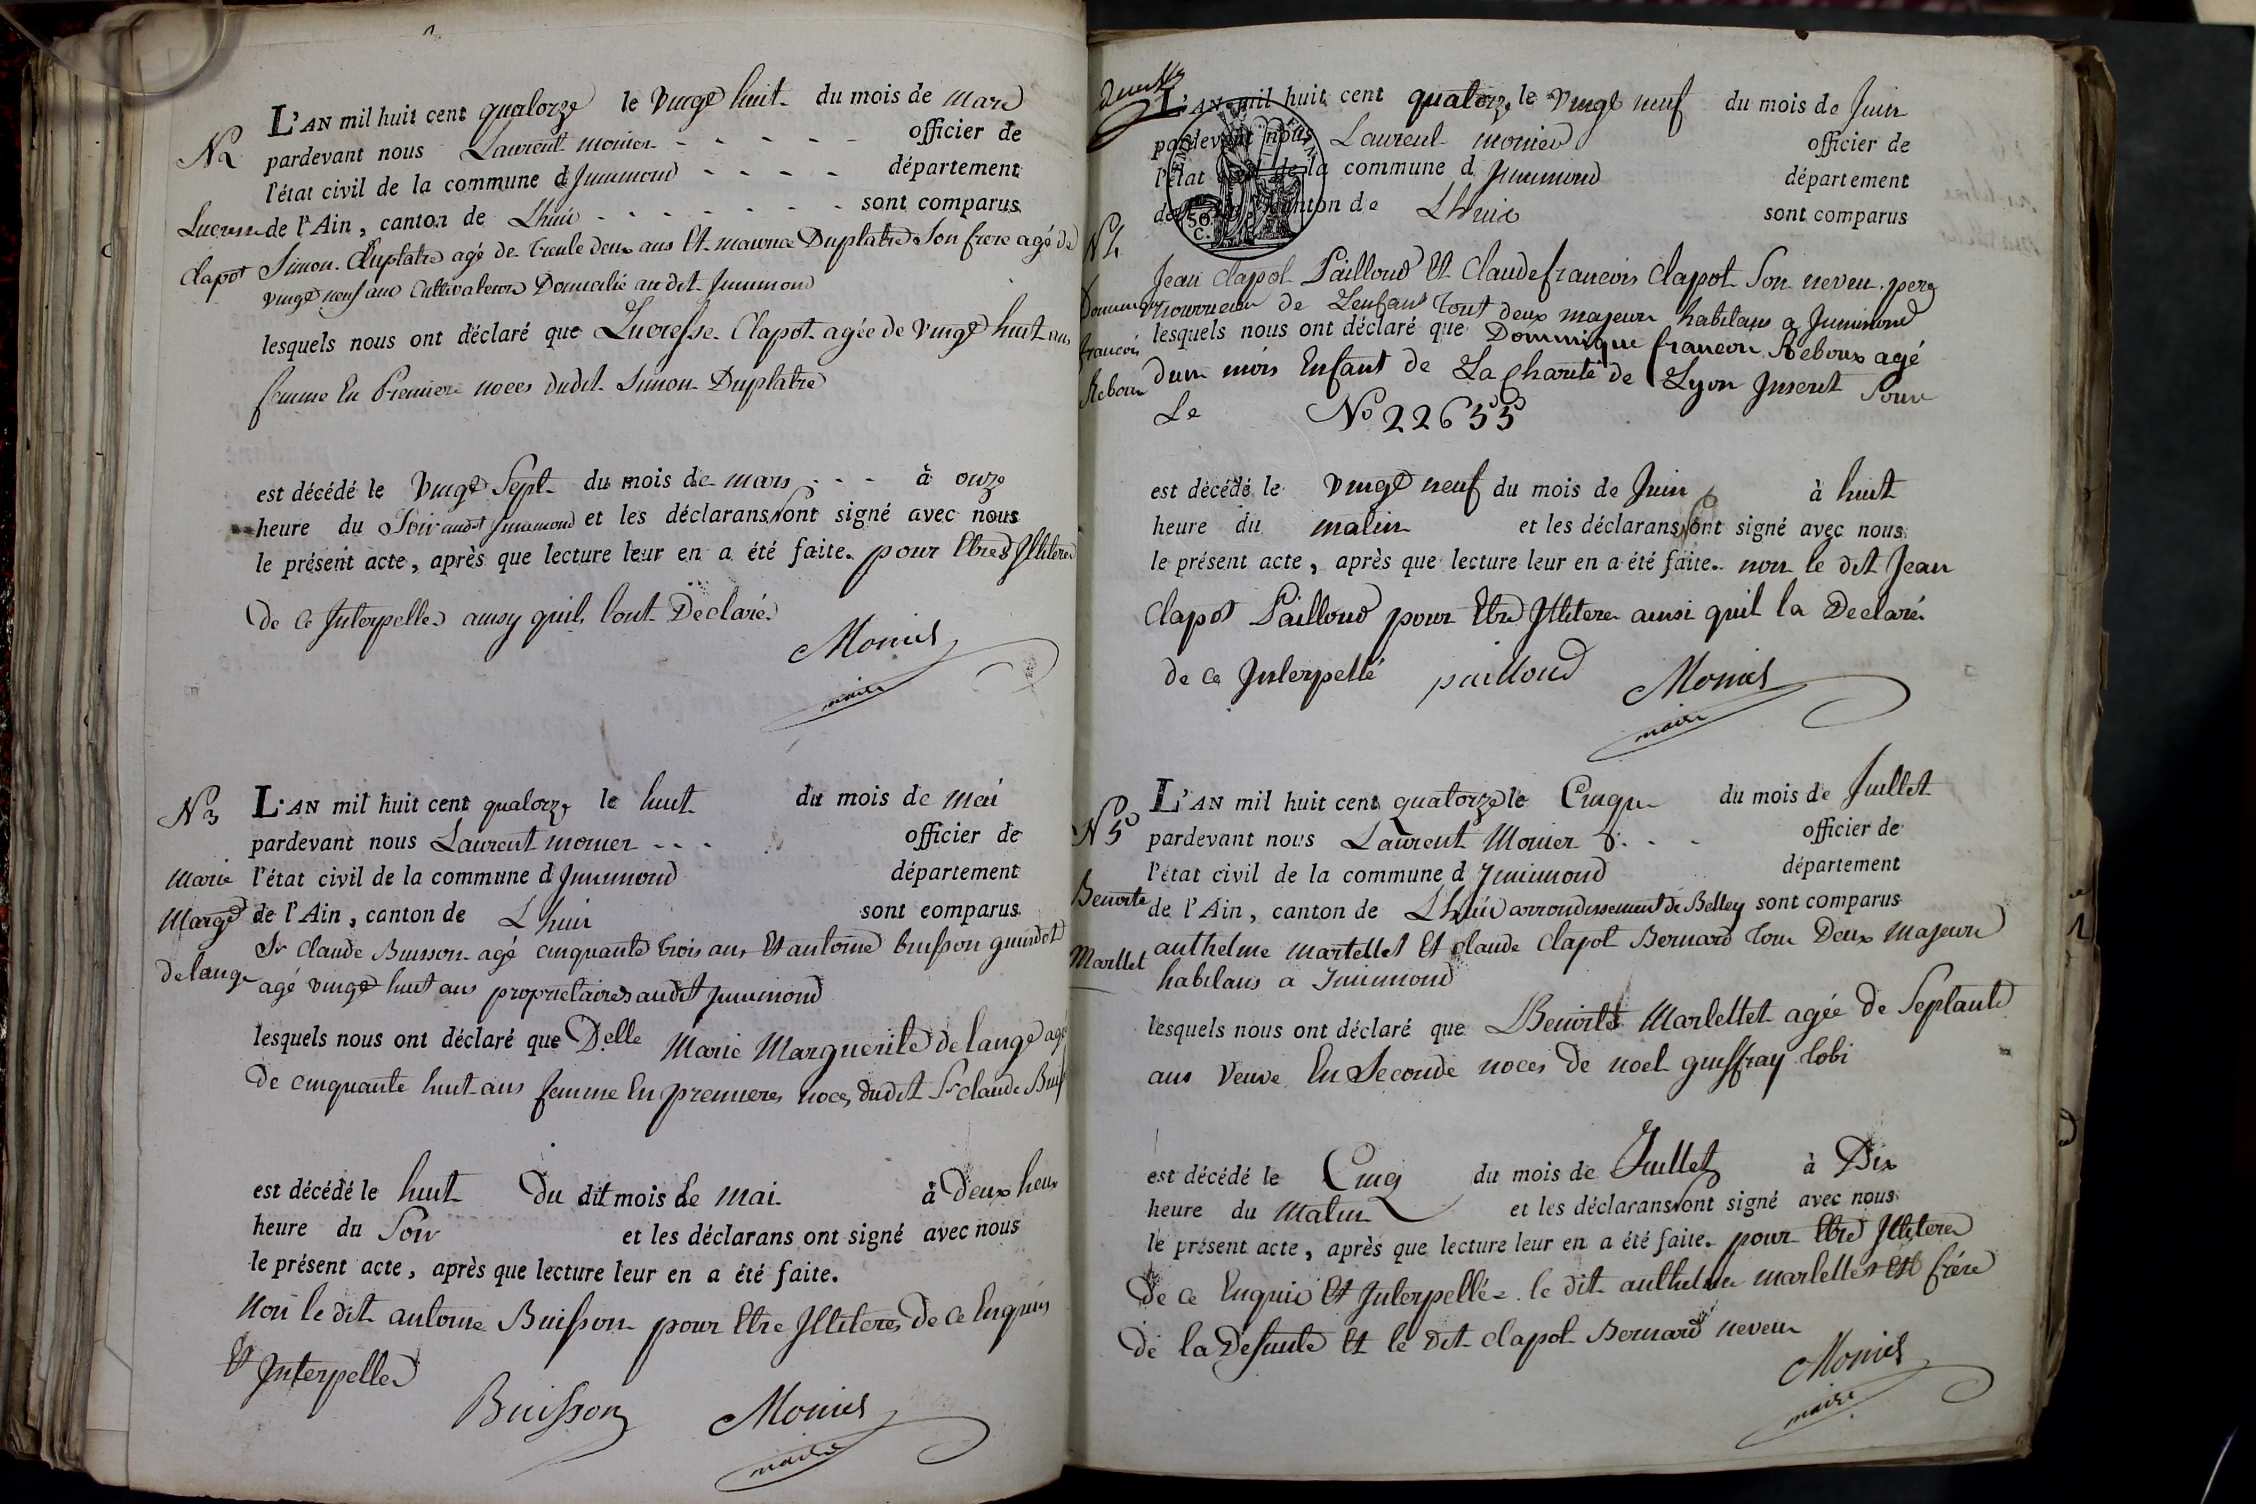 N 2
Lucresse
Clapot
L'AN mil huit cent quatorze le vingt huit du mois de mars
pardevant nous Laurent monier - - - - - officier de
l'état civil de la commune d Jnnimond - - - - département
de l'Ain, canton de Lhuis - - - - - - - sont comparus
Simon Duplatre agé de trente deux ans Et maurice Duplatre son frere agé de
vingt neuf ans Cultivateurs Domicilié au dit Jnnimond
lesquels nous ont déclaré que Lucresse Clapot agée de vingt huit ans
femme En Premiere noces dudit Simon Duplatre
est décédé le vingt Sept du mois de mars - - - à onze
heure du Soir audit Jnnimond et les déclarans nont signé avec nous
le présent acte, après que lecture leur en a été faite. pour Etres Jlliteres
de ce Jnterpelles ainsy quils lont Declaré
Monier
maire
N 3
Marie
Margte
delange
L'AN mil huit cent quatorze le huit du mois de mai
pardevant nous Laurent monier - - - officier de
l'état civil de la commune d Jnnimond département
de l'Ain, canton de Lhuis sont comparus
Sr Claude Buisson agé cinquante trois ans Et antoine buisson guindet
agé vingt huit ans proprietaires audit Jnnimond
lesquels nous ont déclaré que Delle Marie Marguerite delange agé
De cinquante huit ans femme En premieres noces dudit Sr claude Buiss
est décédé le huit Du dit mois de mai à Deux heur
heure du Soir et les déclarans ont signé avec nous
le présent acte, après que lecture leur en a été faite.
Non le dit antoine Buisson pour Etre Jlliteres De ce Enquis
Et Jnterpelles
Buisson Monier
maire
N 4
Dominique
francois
Reboux
L'AN mil huit cent quatorze le vingt neuf du mois de Juin
pardevant nous Laurent monier officier de
l'état civil de la commune d Jnnimond département
de l'Ain, canton de Lhuis sont comparus
50
C.
Jean Clapot Pailloud Et Claude francois Clapot Son neveu pere
nourricier de Lenfant tout deux majeurs habitans a Jnnimond
lesquels nous ont déclaré que Dominique francois Reboux agé
dun mois Enfant de La Charité de Lyon Jnscrit Sous
Le No 22655
est décédé le vingt neuf du mois de Juin à huit
heure du matin et les déclarans ont signé avec nous
le présent acte, après que lecture leur en a été faite. non le dit Jean
Clapot Pailloud pour Etre Jllitere ainsi quil la Declaré
de ce Jnterpellé pailloud Monier
maire
N 5
Benoite
Martlet
L'AN mil huit cent quatorze le Cinque du mois de Juillet
pardevant nous Laurent Monier officier de
l'état civil de la commune d Jnnimond département
de l'Ain, canton de Lhuis arrondissement de Belley sont comparus
anthelme martellet Et Claude Clapot Bernard tous Deux Majeurs
habitans a Jnnimond
lesquels nous ont déclaré que Benoite Martellet agée de Septante
ans Veuve En Seconde noces de noel guiffray tobi
est décédé le Cinq du mois de Juillet à Dix
heure du Matin et les déclarans nont signé avec nous
le présent acte, après que lecture leur en a été faite. pour Etre Jlliteres
De ce Enquis Et Jnterpellés le dit anthelme martellet Est frére
de la Defunte Et le Dit Clapot Bernard neveu
Monier
maire